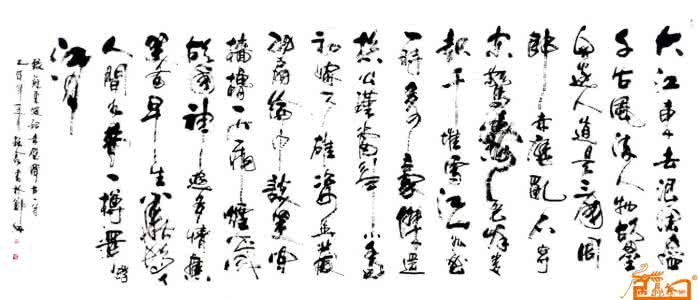 大江東去浪淘盡
千古風流人物故壘
西邊人道是三國周
郎赤壁亂石穿
空驚濤拍岸卷
起千堆雪江山如畫
一時多少豪傑遙
想公瑾當年小喬
初嫁了雄姿英發
羽扇綸巾談笑間
檣櫓灰飛煙滅
故國神遊多情應
笑我早生華髮
人間如夢一樽還酹
江月
錄蘇東坡詞赤壁懷古一首